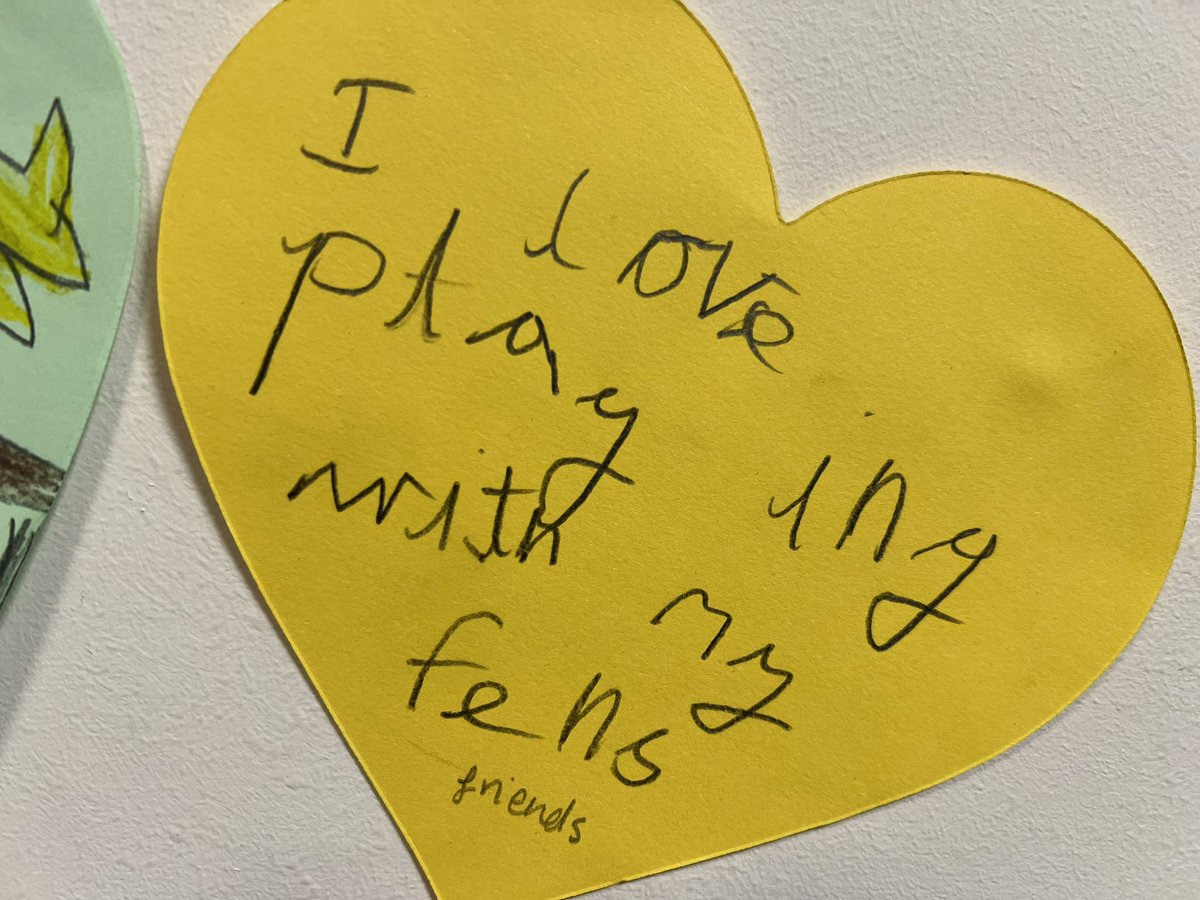 I love
playing
with my
fens
friends